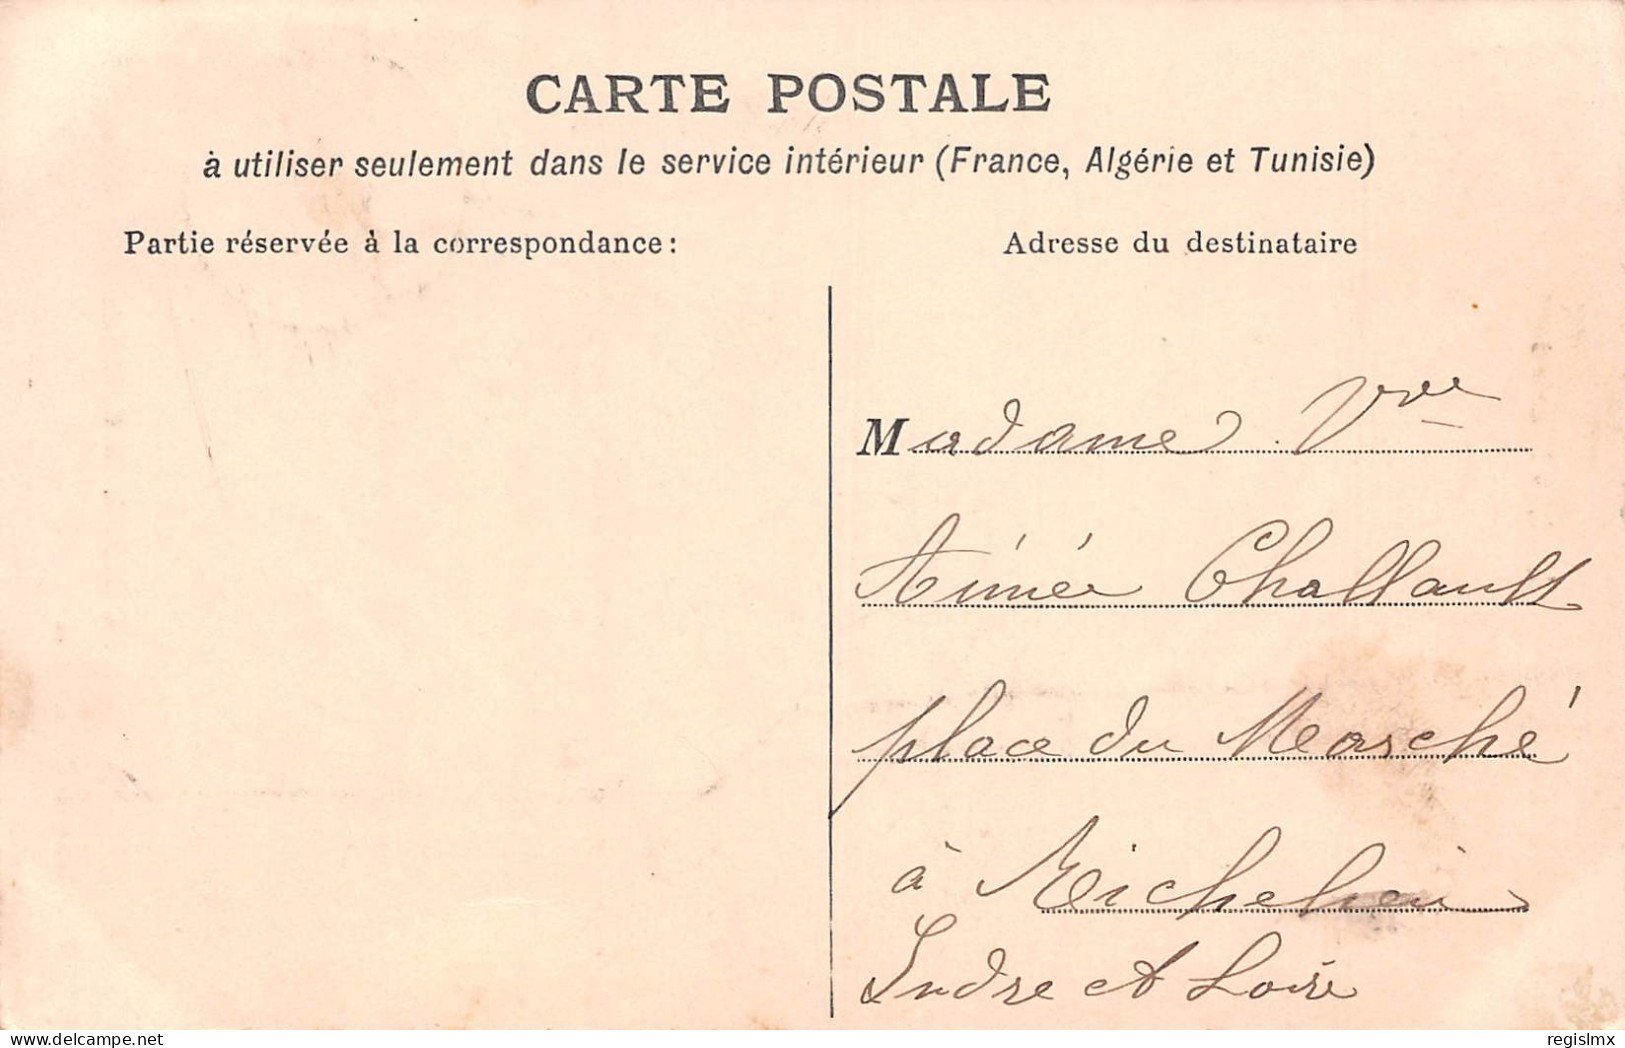 CARTE POSTALE
à utiliser seulement dans le service intérieur (France, Algérie et Tunisie)
Partie réservée à la correspondance :
Adresse du destinataire
Madame Vve
Aimée Challault
place du Marché
à Richelieu
Indre et Loire
delcampe.net
regislmx